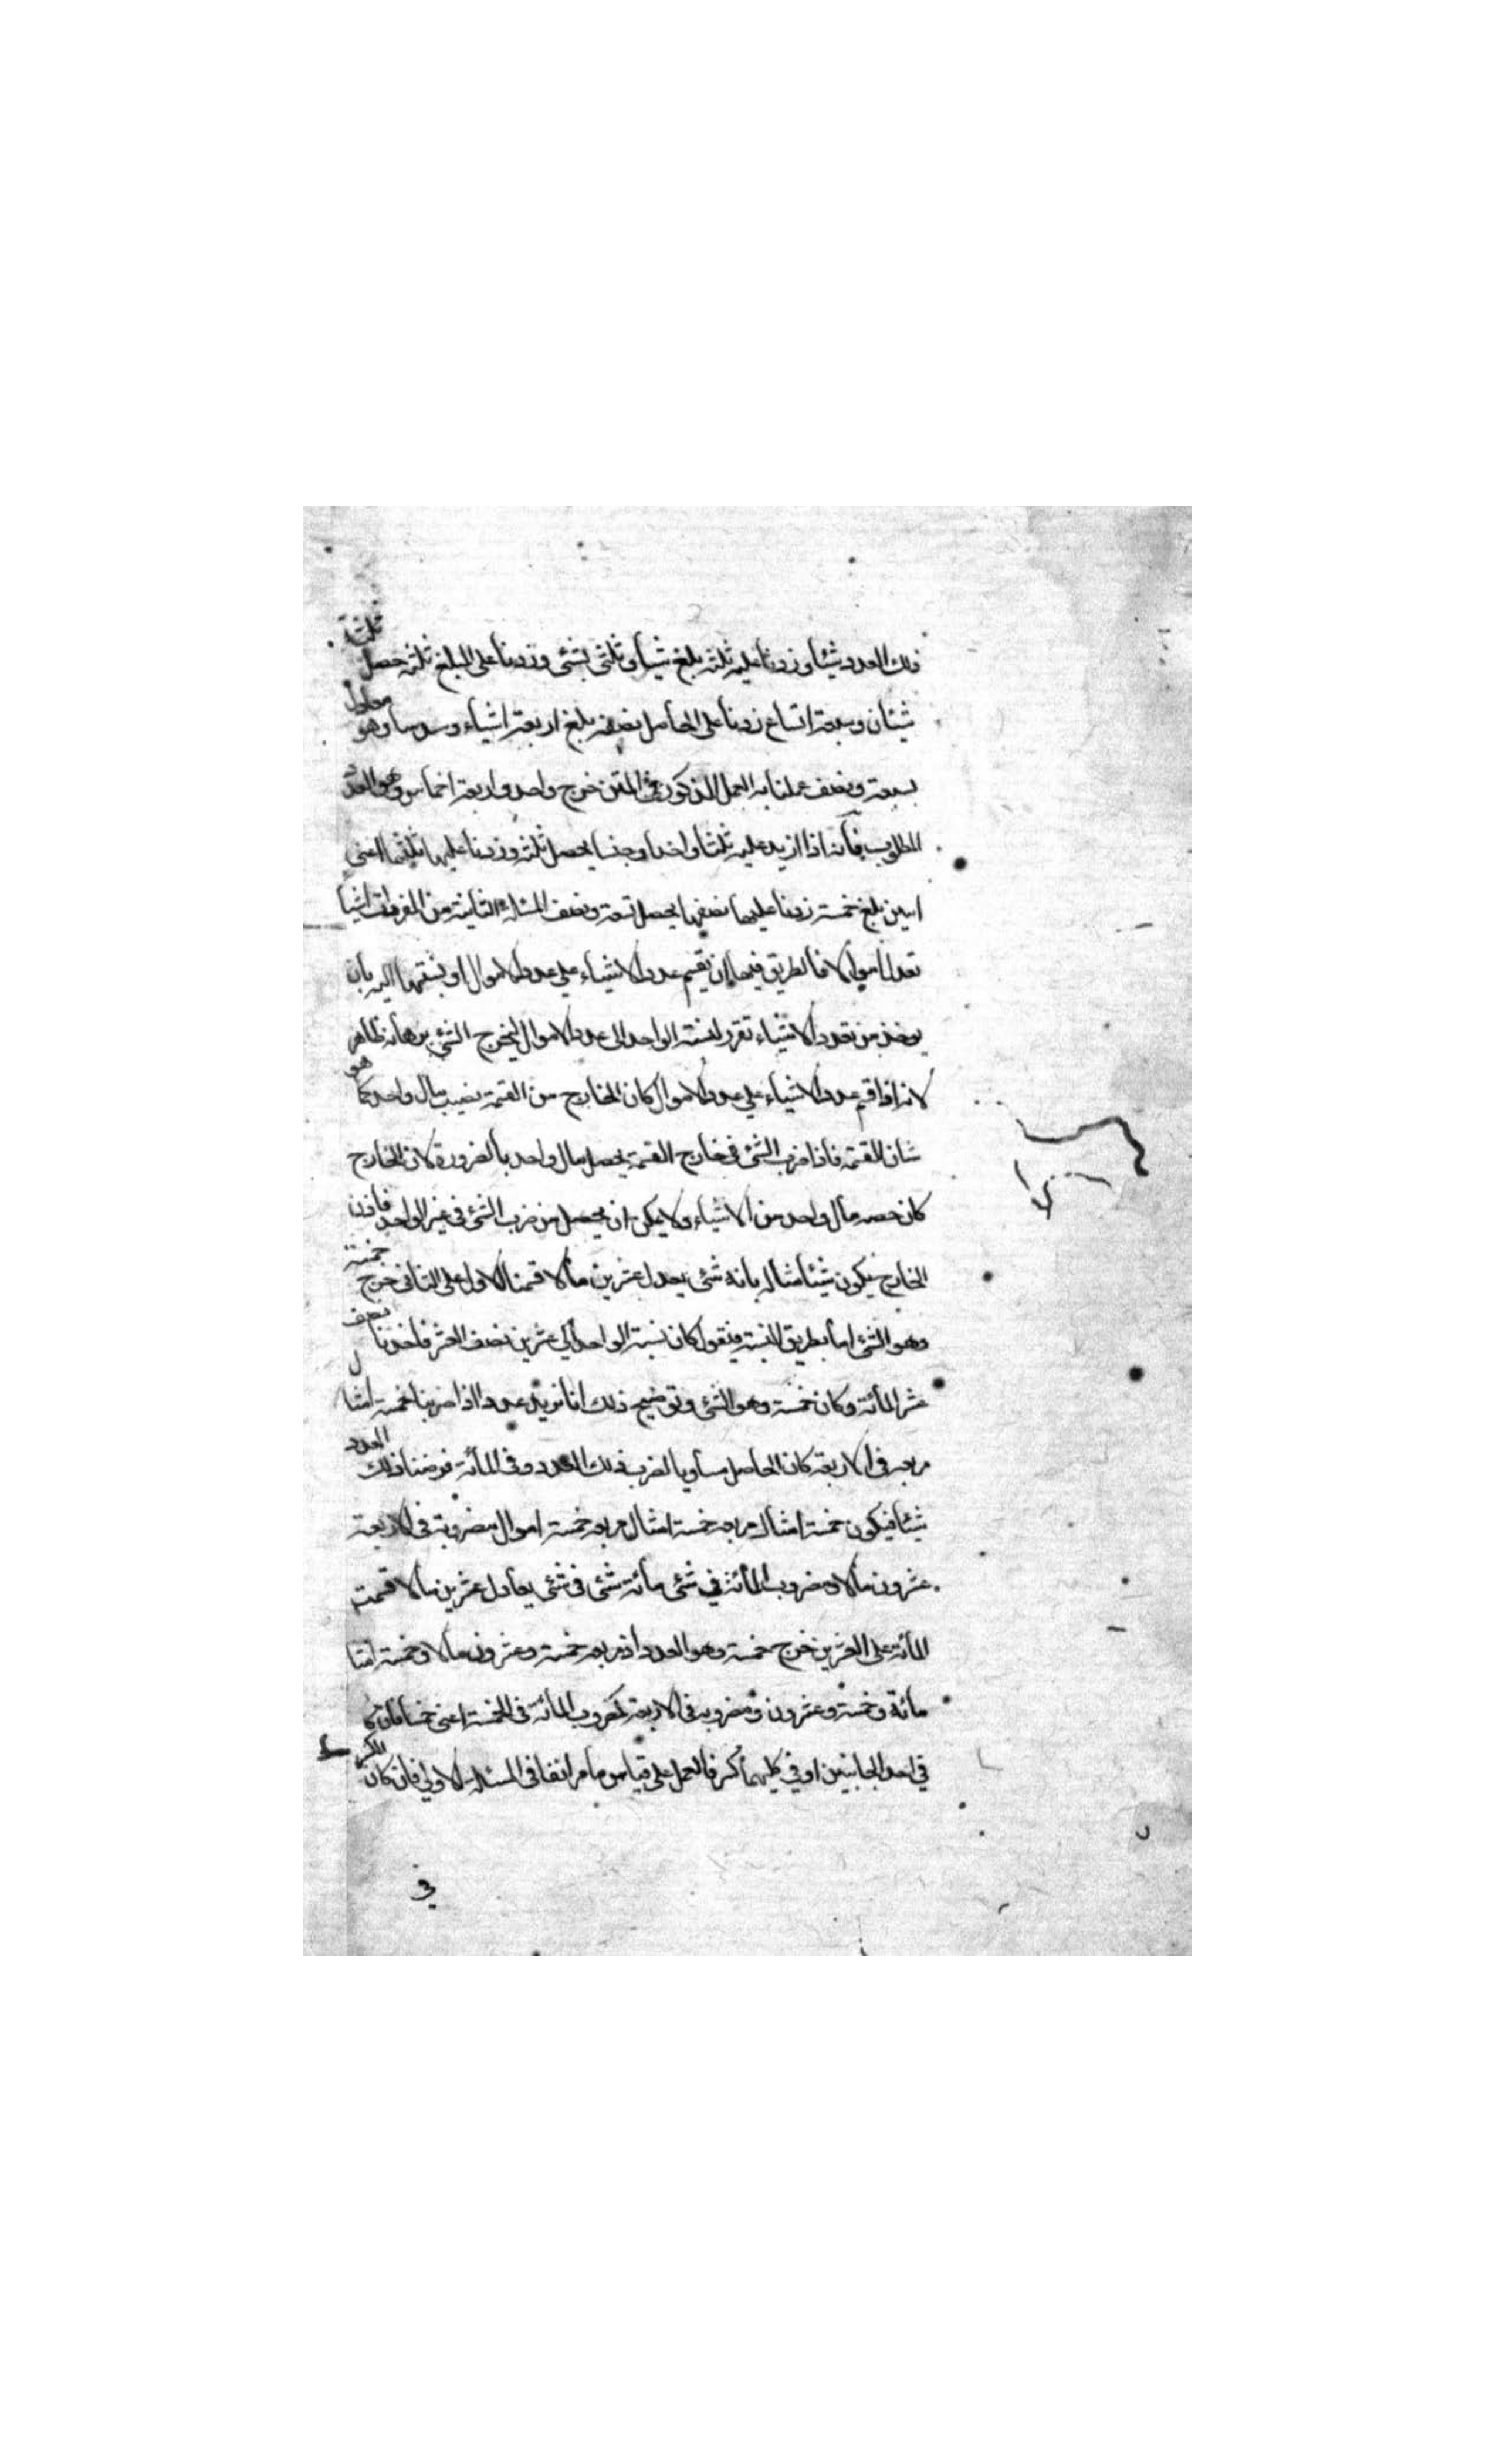 ذلك العدد شيئا وزدنا عليه ثلثه بلغ شيئا وثلثى شئى وزدنا على المبلغ ثلثه حصل ثلثة
شيئان وسبعة اتساع زدنا على الحاصل نصفه بلغ اربعة اشياء وسدسا وهو معادل
بسبعة ونصف عملنا به العمل المذكور فى المتن خرج واحد واربعة اخماس وهو العدد
المطلوب فانه اذا ازيد عليه ثلثا واحدا وخمسا يحصل ثلثة وزدنا عليها ثلثيها اعنى
اثنين بلغ خمسة زدنا عليها نصفها يحصل سبعة ونصف المسئلة الثانية من المفردات اشيا
تعدل اموالا فالطريق فيها ان يقسم عدد الاشياء على عدد الاموال او بنسبتها اليه بان
يوخذ من تعدد الاشياء بقدر نسبة الواحد الى عدد الاموال ليخرج الشئ برهانه ظاهر
لانه اذا قسم عدد الاشياء على عدد الاموال كان الخارج من القسمة نصيب مال واحد كما هو
شان القسمة فاذا ضرب الشئ فى خارج القسمة يحصل مال واحد بالضرورة لان الخارج
كان حصه مال واحد من الاشياء ولا يمكن ان يحصل من ضرب الشئ فى غير الواحد فاذن
الخارج يكون شيئا مثاله مائة شئى يعدل عشرين مالا قسمنا الاول على الثانى خرج خمسة
وهو الشئ اما بطريق النسبة فنقول كان نسبة الواحد الى عشرين نصف العشر فاخذنا نصف
عشر المائة وكان خمسة وهو الشئ وتوضيح ذلك انا نريد عددا اذا ضربنا خمسة امثال
مربعه فى الاربعة كان الحاصل مساويا لضرب ذلك العدد فى المائة فرضنا ذلك العدد
شيئا فيكون خمسة امثال مربعه خمسة امثال مربعه خمسة اموال مضروبة فى الاربعة
عشرون مالا ومضروب المائة فى شئى مائة شئى فى شئى يعادل عشرين مالا قسمت
المائة على العشرين خرج خمسة وهو العدد اذ مربعه خمسة وعشرون مالا وخمسة امثا
مائة وخمسة وعشرون ومضروبه فى الاربعة كمضروب المائة فى الخمسة اعنى خمسمائة فان كا
فى احد الجانبين او فى كليهما كسر فالعمل على قياس ما مر انفا فى المسئلة الاولى فان كان الكسر
فى